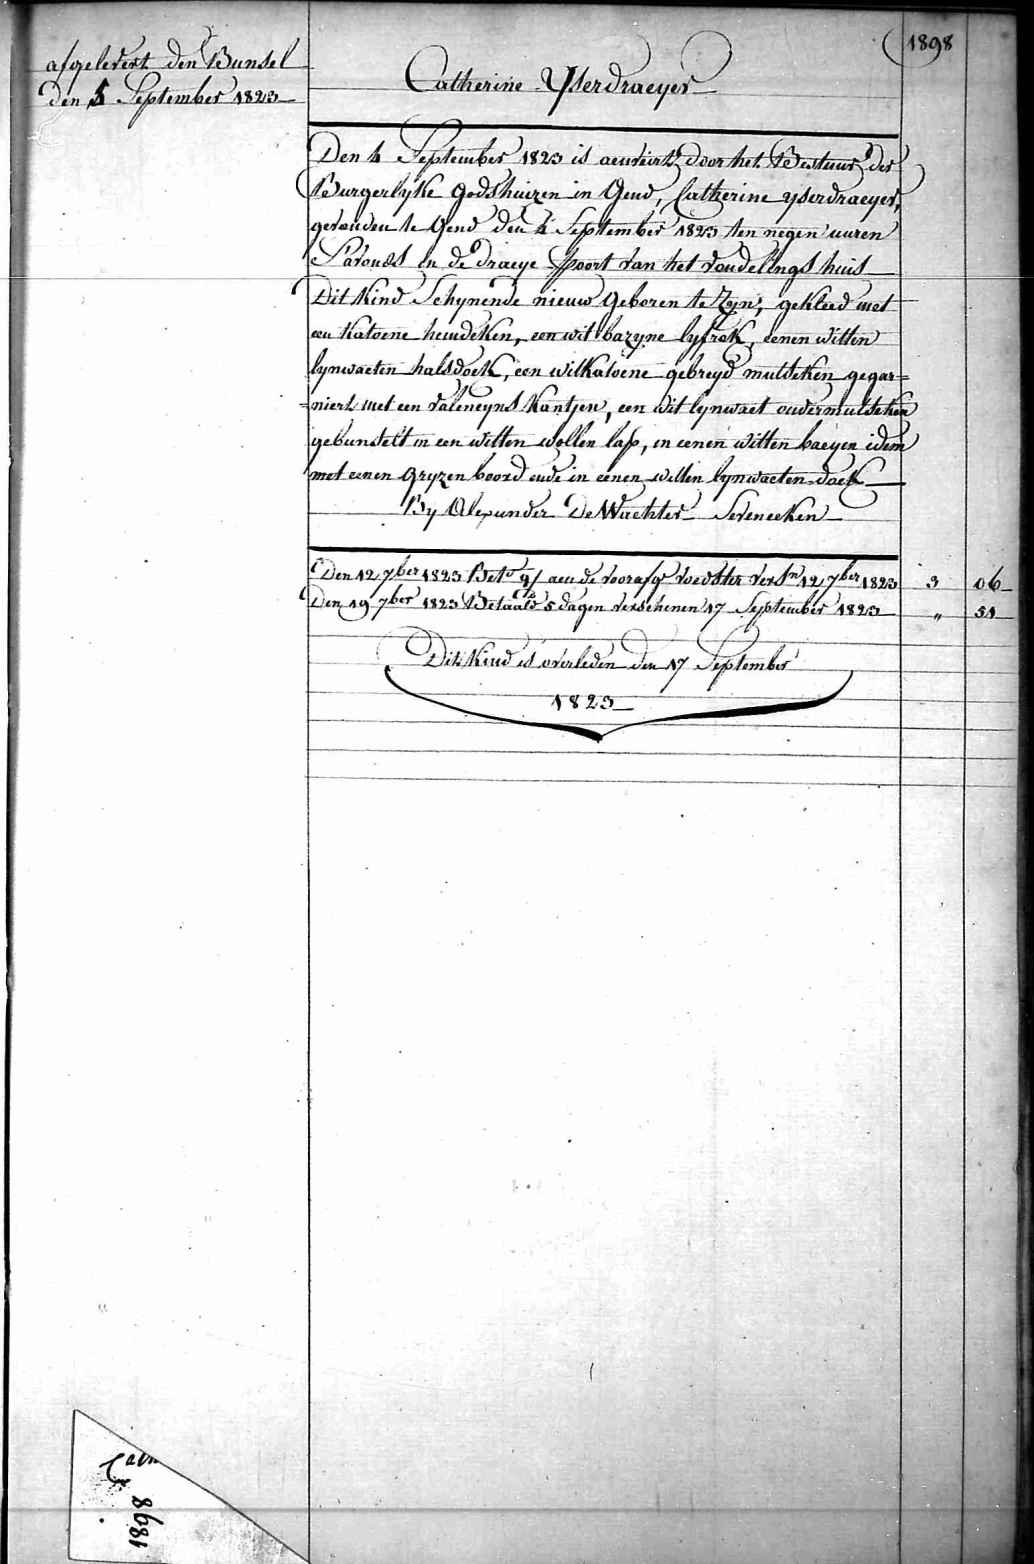 1898
afgelevert den Bunsel
den 5 September 1823
Catherine Yserdraeyer
Den 4 September 1823 is aenveirt door het Bestuur der
Burgerlyke Godshuizen in Gend, Catherine yserdraeyer,
gevonden te Gend den 4 September 1823 ten negen uuren
S'avonds in de Draeye Poort van het vondelings huis
Dit Kind Schynende nieuw Geboren te Zyn, gekleed met
een katoene hemdeken, een wit bazyne lyfrok, eenen witten
lynwaeten halsdoek, een witkatoene gebreyd mutseken gegar=
=niert met een valeneyns Kantjen, een wit lynwaet ondermutseken
gebunselt in een witten wollen lap, in eenen witten baeyen idem
met eenen gryzen boord ende in eenen witten lynwaeten doek
By Alexander De Wachter Seveneeken
Den 12 7ber 1823 Bet.d aen de voorafge voedster versn 12 7ber 1823 3 06
Den 19 7ber 1823 Betaald 5 dagen verschenen 17 September 1823 " 51
Dit Kind is overleden den 17 September
1823
1898